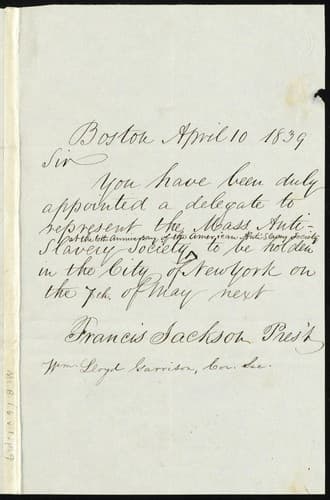 Boston April 10 1839
Sir
You have been duly
appointed a delegate to
represent the Mass Anti-
at the 6th Anniversary of the American Anti Slavery Society
Slavery Society, to be holden
in the City of New York on
the 7th of May next
Francis Jackson Pres't
Wm. Lloyd Garrison, Cor. Sec.